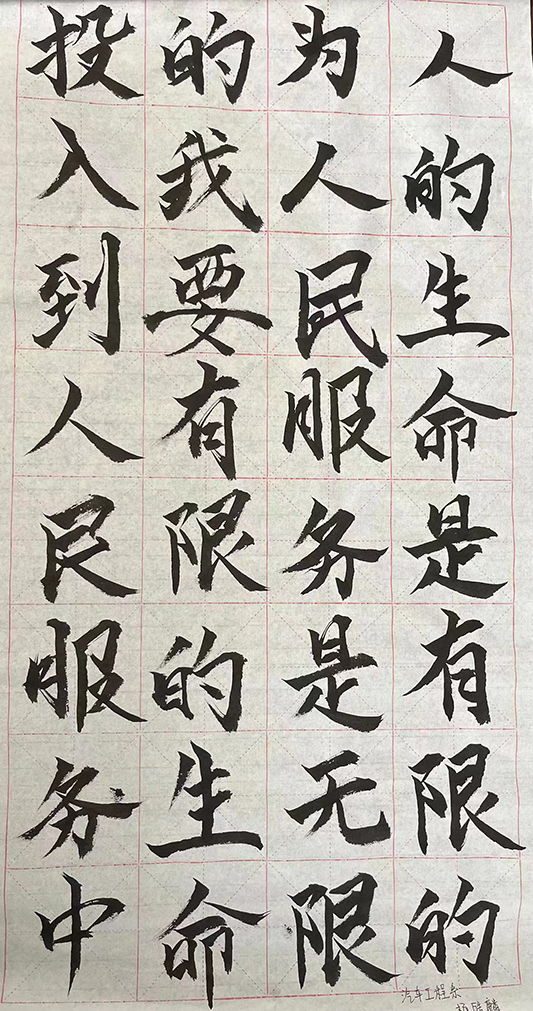 人的生命是有限的
为人民服务是无限
的我要有限的生命
投入到人民服务中
汽车工程系